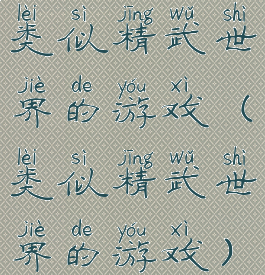 lèi sì jīng wǔ shì
类似精武世
jiè de yóu xì
界的游戏（
lèi sì jīng wǔ shì
类似精武世
jiè de yóu xì
界的游戏）